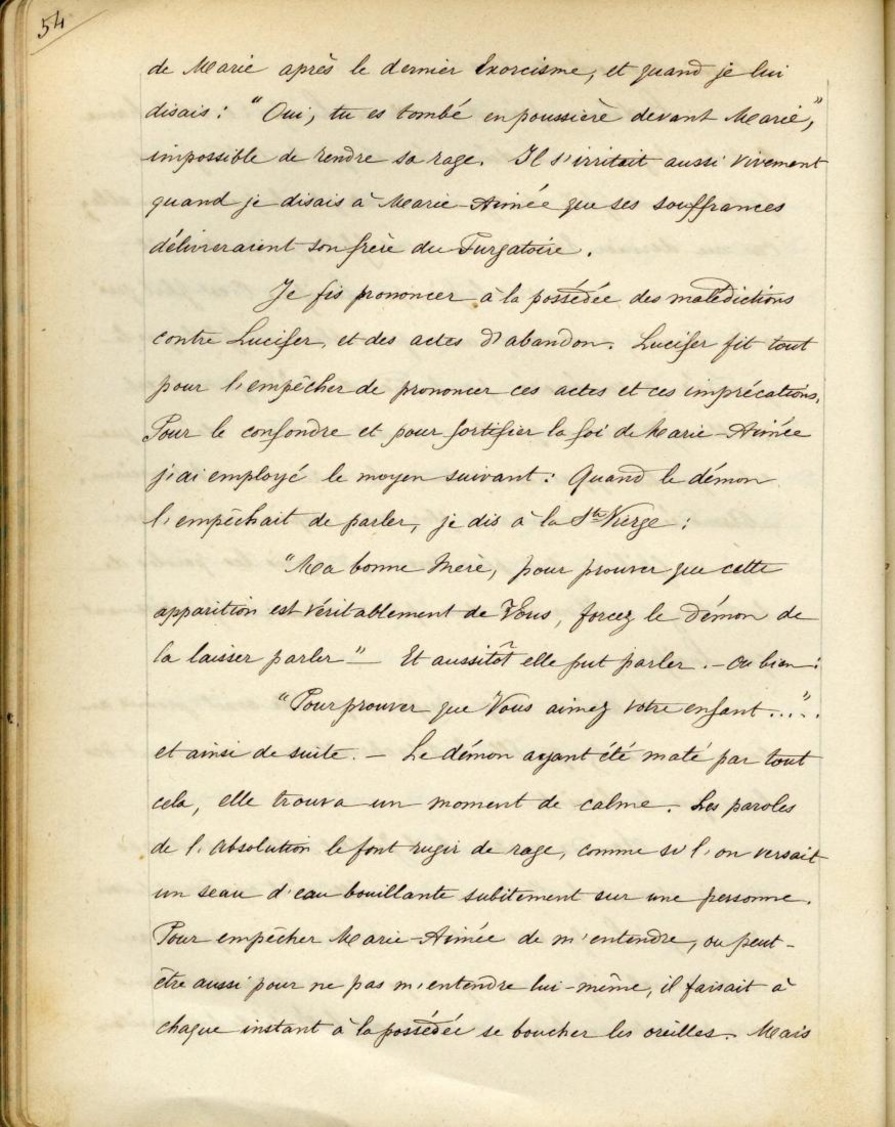 54
de Marie après le dernier Exorcisme, et quand je lui
disais : "Oui, tu es tombé en poussière devant Marie,"
impossible de rendre sa rage. Il s'irritait aussi vivement
quand je disais à Marie-Aimée que ses souffrances
délivreraient son frère du Purgatoire.
Je fis prononcer à la possédée des malédictions
contre Lucifer, et des actes d'abandon. Lucifer fit tout
pour l'empêcher de prononcer ces actes et ces imprécations.
Pour le confondre et pour fortifier la foi de Marie-Aimée
j'ai employé le moyen suivant : Quand le démon
l'empêchait de parler, je dis à la Ste Vierge :
"Ma bonne Mère, pour prouver que cette
apparition est véritablement de Vous, forcez le démon de
la laisser parler" – Et aussitôt elle put parler. – Ou bien :
"Pour prouver que Vous aimez votre enfant...".
et ainsi de suite. – Le démon ayant été maté par tout
cela, elle trouva un moment de calme. Les paroles
de l'Absolution le font rugir de rage, comme si l'on versait
un seau d'eau bouillante subitement sur une personne.
Pour empêcher Marie-Aimée de m'entendre, ou peut-
être aussi pour ne pas m'entendre lui-même, il faisait à
chaque instant à la possédée se boucher les oreilles. Mais